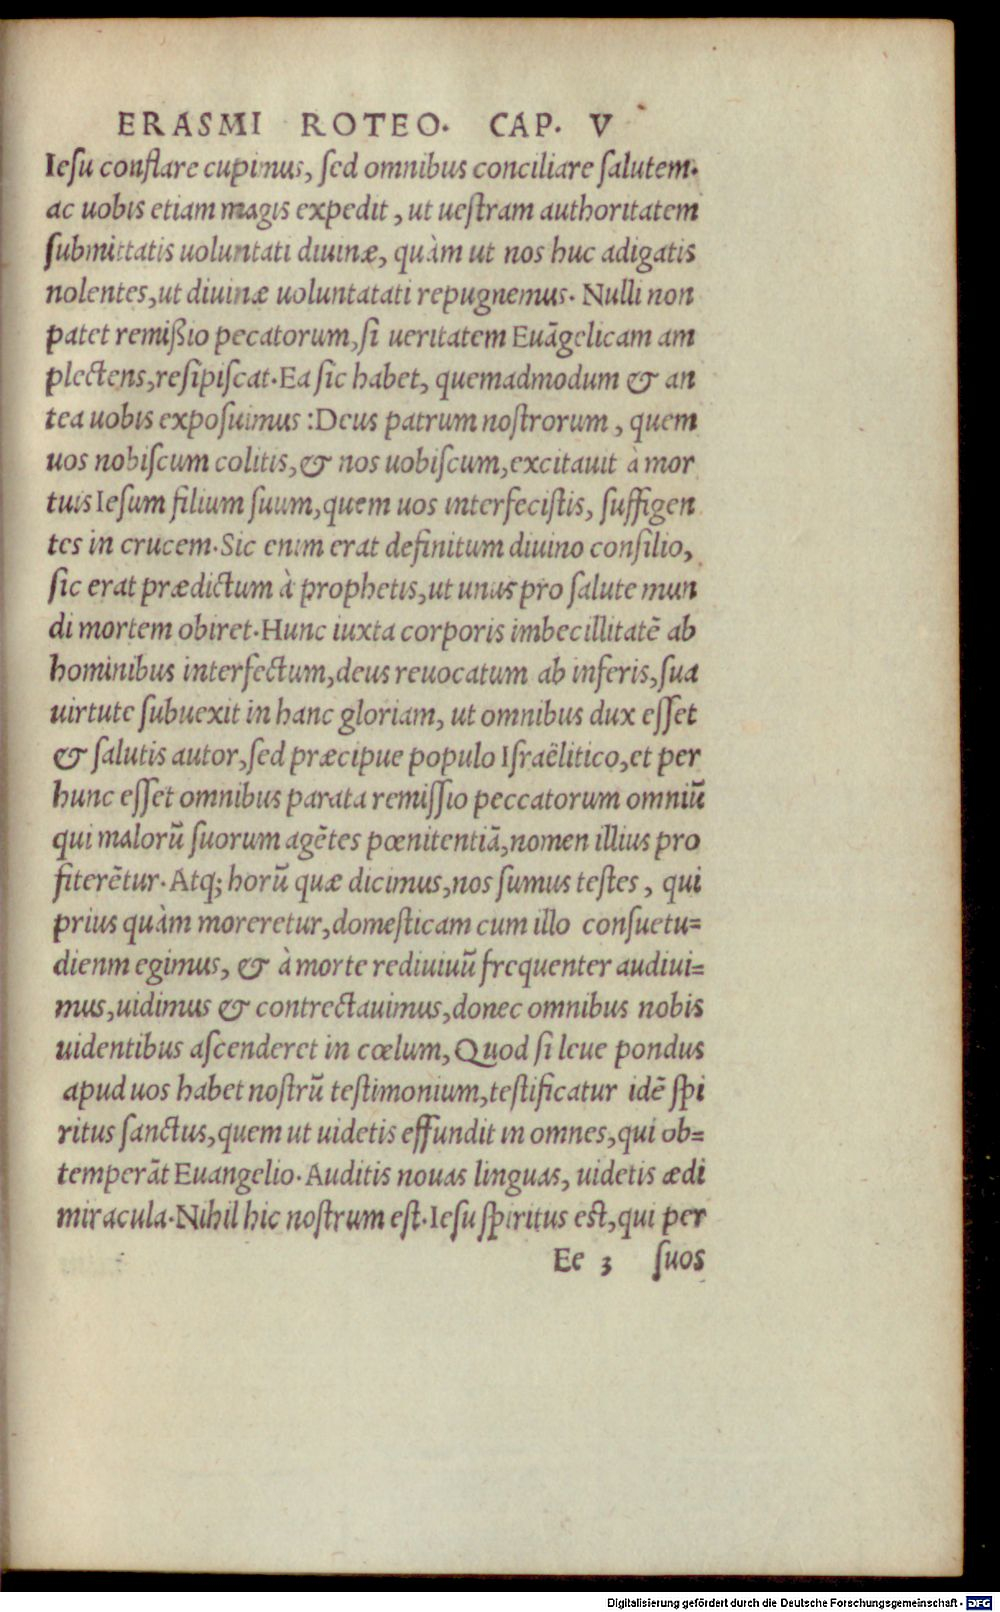 ERASMI ROTEO. CAP. V
Iesu conflare cupimus, sed omnibus conciliare salutem.
ac uobis etiam magis expedit, ut uestram authoritatem
submittatis uoluntati diuinæ, quàm ut nos huc adigatis
nolentes, ut diuinæ uoluntatati repugnemus. Nulli non
patet remißio pecatorum, si ueritatem Euãgelicam am
plectens, resipiscat. Ea sic habet, quemadmodum & an
tea uobis exposuimus: Deus patrum nostrorum, quem
uos nobiscum colitis, & nos uobiscum, excitauit à mor
tuis Iesum filium suum, quem uos interfecistis, suffigen
tes in crucem. Sic enim erat definitum diuino consilio,
sic erat prædictum à prophetis, ut unus pro salute mun
di mortem obiret. Hunc iuxta corporis imbecillitatẽ ab
hominibus interfectum, deus reuocatum ab inferis, sua
uirtute subuexit in hanc gloriam, ut omnibus dux esset
& salutis autor, sed præcipue populo Israëlitico, et per
hunc esset omnibus parata remissio peccatorum omniũ
qui malorũ suorum agẽtes pœnitentiã, nomen illius pro
fiterẽtur. Atq; horũ quæ dicimus, nos sumus testes, qui
prius quàm moreretur, domesticam cum illo consuetu=
dienm egimus, & à morte rediuiuũ frequenter audiui=
mus, uidimus & contrectauimus, donec omnibus nobis
uidentibus ascenderet in cœlum, Quod si leue pondus
apud uos habet nostrũ testimonium, testificatur idẽ spi
ritus sanctus, quem ut uidetis effundit in omnes, qui ob=
temperãt Euangelio. Auditis nouas linguas, uidetis ædi
miracula. Nihil hic nostrum est. Iesu spiritus est, qui per
Ee 3 suos
Digitalisierung gefördert durch die Deutsche Forschungsgemeinschaft - DFG